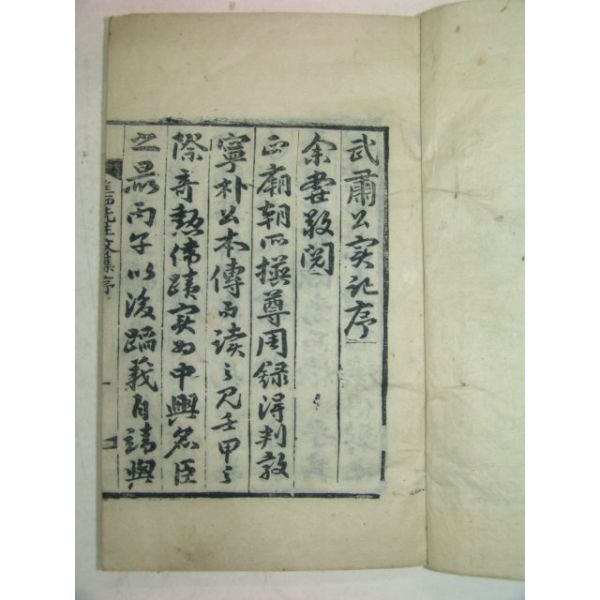 武肅公實記序
余嘗敬閱
正廟朝所撰尊周錄得判敦
寧朴公本傳而讀之見壬甲之
際奇勳偉蹟實爲中興名臣
世最丙子以後蹈義自靖與
先生文集序